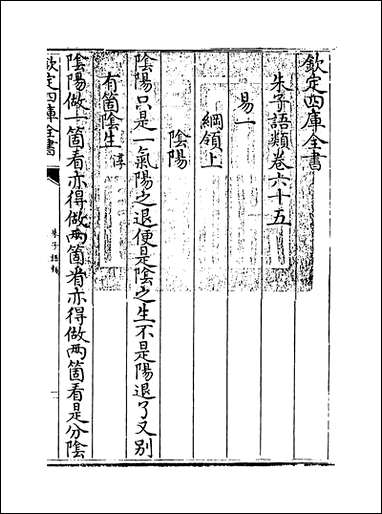 欽定四庫全書
朱子語類卷六十五
易一
綱領上
陰陽
陰陽只是一氣陽之退便是陰之生不是陽退了又别
有箇陰生 淳
陰陽做一箇看亦得做兩箇看亦得做兩箇看是分陰
欽定四庫全書
朱子語類